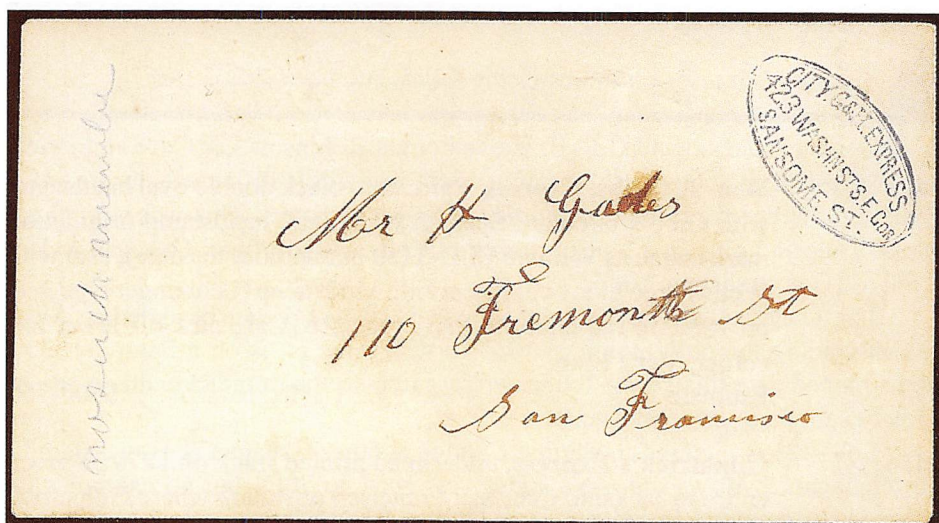 CITY G&P. EXPRESS
423 WASHN ST S.E. COR
SANSOME ST.
Mr H Gades
110 Fremont St
San Francisco
no such number